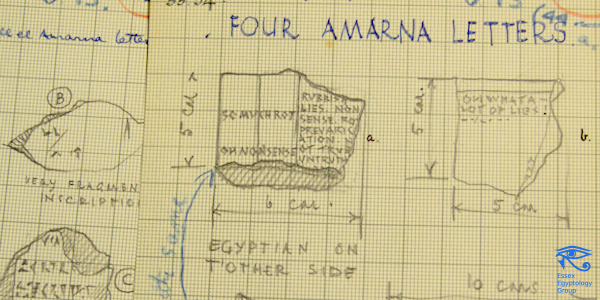 FOUR AMARNA LETTERS.
el Amarna letter
B
VERY FRAGMEN
INSCRIPTIO
C
5 CM
SO MUCH ROT
OH NONSENSE
RUBBISH
LIES. NON
SENSE. RO
PREVARIC
ATION
OF TRUE
UNTRUTH
a.
6 CM.
EGYPTIAN ON
T'OTHER SIDE
same
5 CM
OH WHAT A
LOT OF LIES.
b.
5 CM
10 CMS
Essex
Egyptology
Group